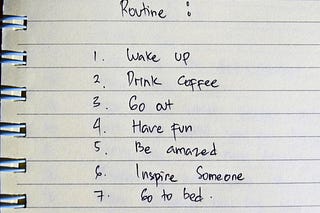 Routine :
1. Wake up
2. Drink Coffee
3. Go out
4. Have fun
5. Be amazed
6. Inspire Someone
7. Go to bed.